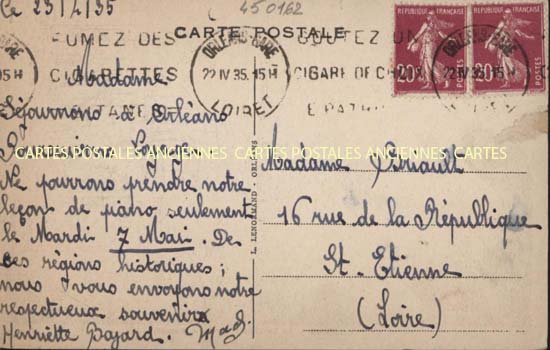 Le 23/4/35
450162
CARTE POSTALE
FUMEZ DES
CIGARETTES
GITANES
ORLEANS-GARE
22 IV 35. 15 H
LOIRET
GOUTEZ UN
CIGARE DE CH
EPATANT
ORLEANS-GARE
REPUBLIQUE FRANÇAISE
20c
POSTES
REPUBLIQUE FRANÇAISE
20c
POSTES
Madame
Séjournons à Orléans
CARTES POSTALES ANCIENNES CARTES POSTALES ANCIENNES CARTES
Ne pourrons prendre notre
leçon de piano seulement
le Mardi 7 Mai. De
ces régions historiques;
nous vous envoyons notre
respectueux souvenir
Henriette Bayard. Mad.
L. LENORMAND - ORLEANS
Madame
16 rue de la République
St-Etienne
(Loire)